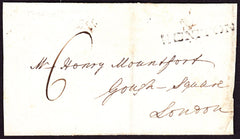 6
Mr Henry Mountfort
Gough - Square
London